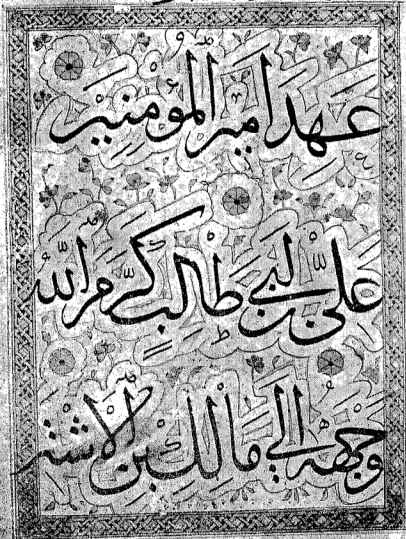 عهد امير المؤمنين
علي بن ابي طالب كرم الله
وجهه الي مالك بن الاشتر